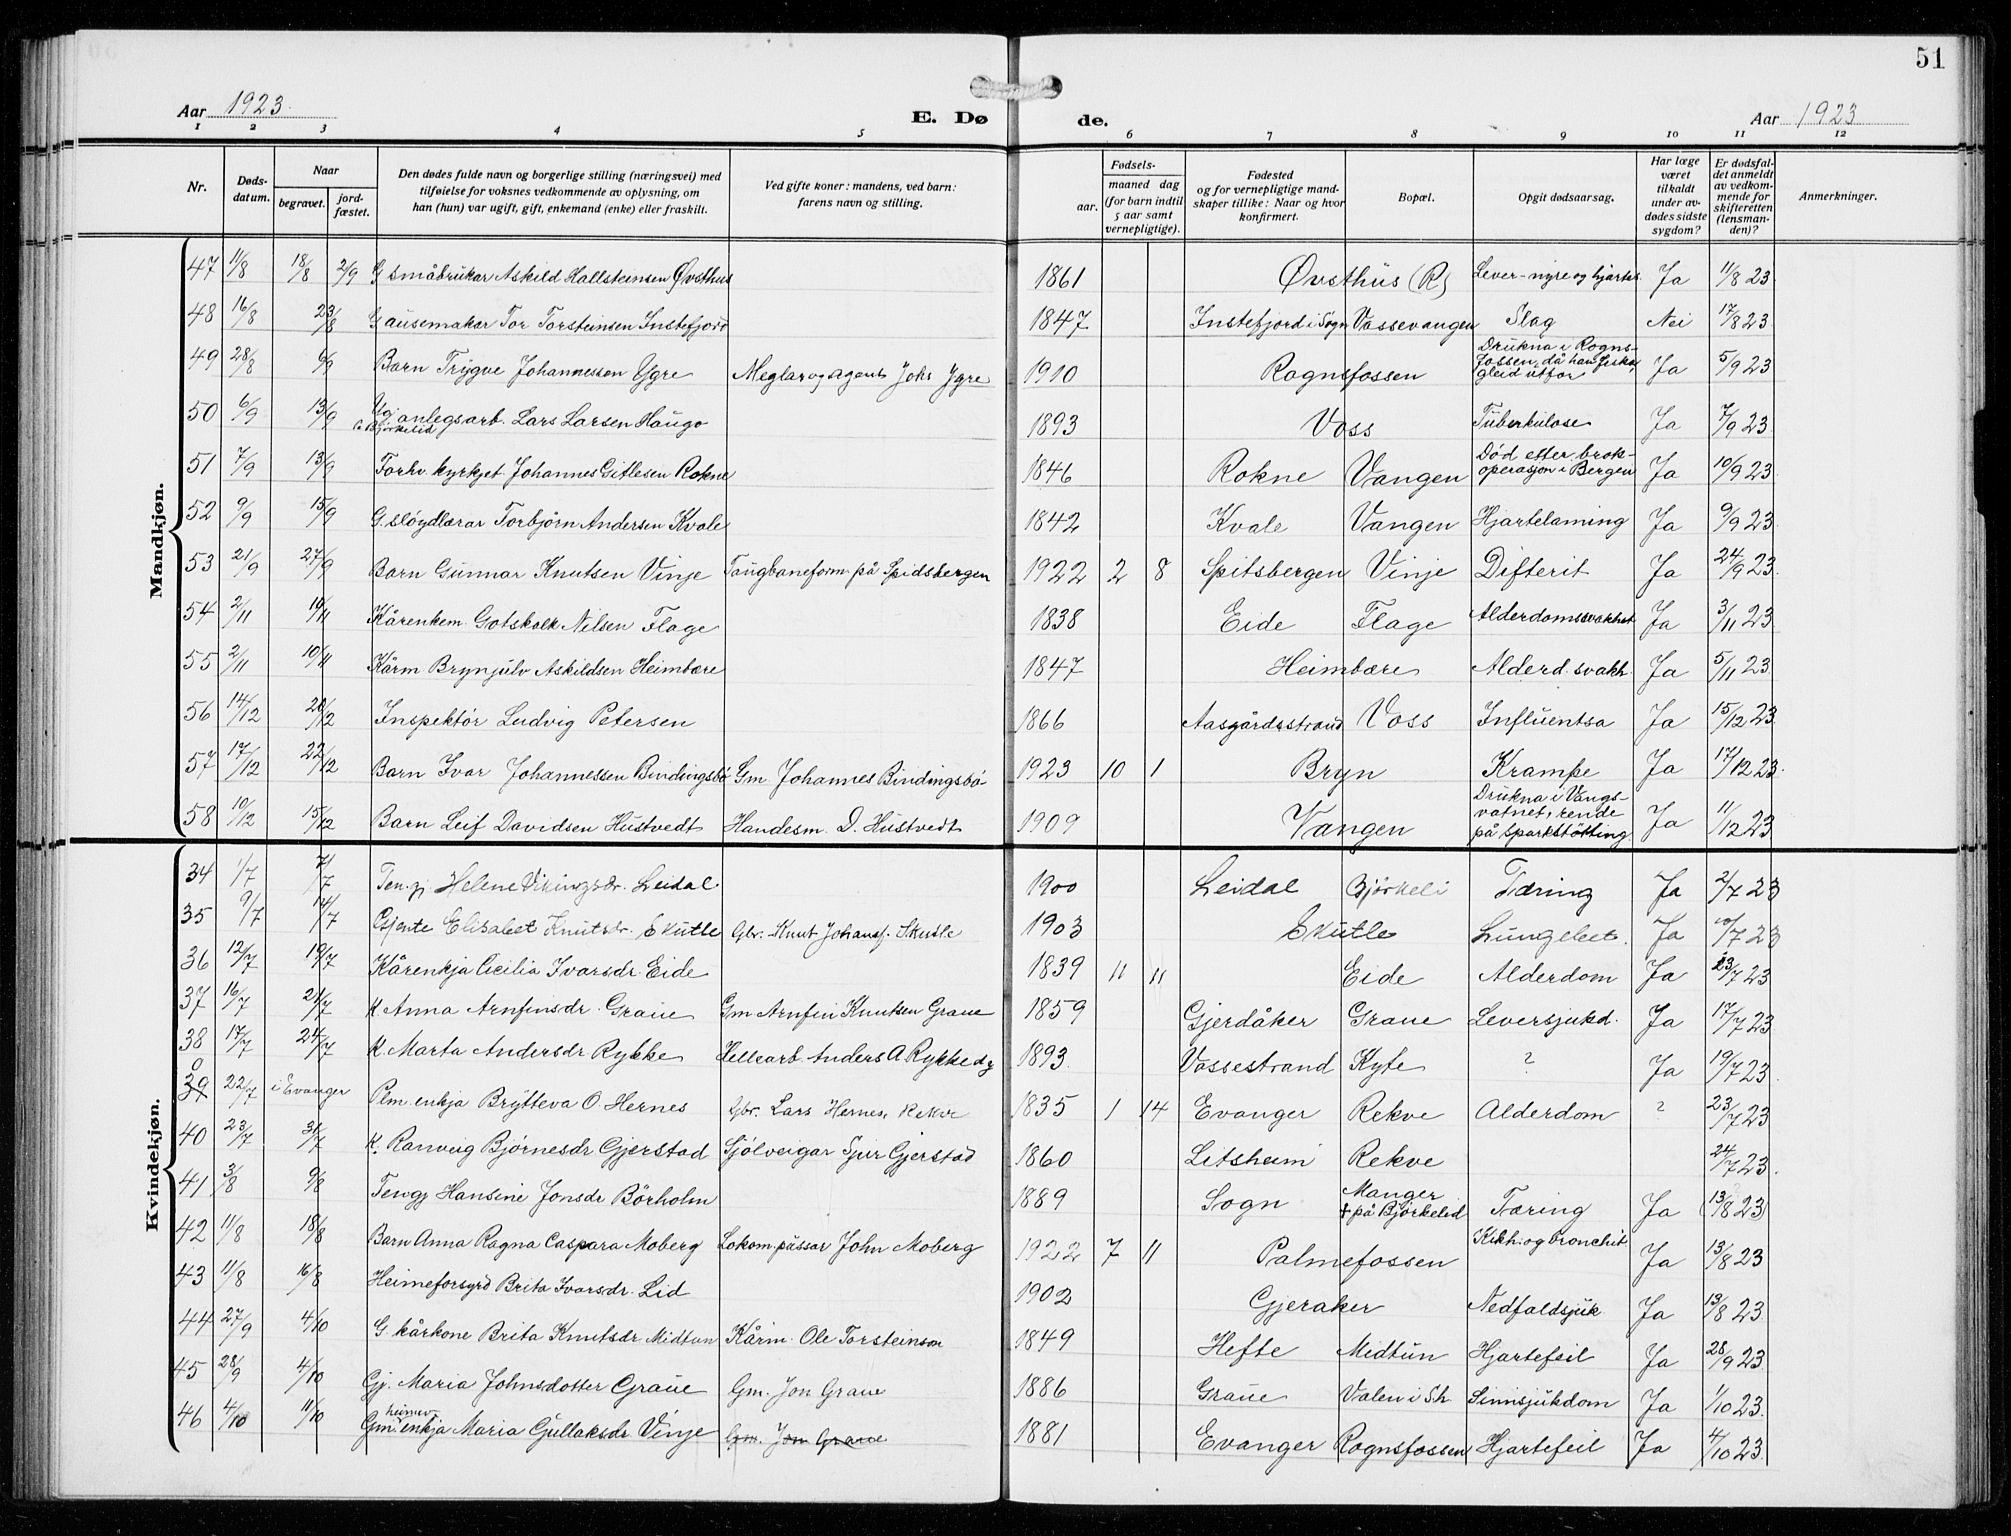 51
Aar 1923.
E. Dø de.
Aar 1923
1 2 3 4 5 6 7 8 9 10 11 12
Nr.
Døds-
datum.
Naar
begravet.
jord-
fæstet.
Den dødes fulde navn og borgerlige stilling (næringsvei) med
tilføielse for voksnes vedkommende av oplysning, om
han (hun) var ugift, gift, enkemand (enke) eller fraskilt.
Ved gifte koner: mandens, ved barn:
farens navn og stilling.
Fødsels-
aar.
maaned dag
(for barn indtil
5 aar samt
vernepligtige).
Fødested
og for vernepligtige mand-
skaper tillike: Naar og hvor
konfirmert.
Bopæl.
Opgit dødsaarsag.
Har læge
været
tilkaldt
under av-
dødes sidste
sygdom?
Er dødsfal-
det anmeldt
av vedkom-
mende for
skifteretten
(lensman-
den)?
Anmerkninger.
Mandkjøn.
47 11/8 18/8 2/9 G småbrukar Askild Hallsteinsen Øvsthus 1861 Øvsthus (R) Lever-nyre og hjartes. Ja 11/8 23
48 16/8 23/8 Tor Torsteinsen Instefjord 1847 Instefjord i Sogn Vossevangen Slag Nei 17/8 23
49 28/8 6/9 Barn Trygve Johannessen Ygre Meglar og Agent Johs Ygre 1910 Rognsfossen Drukna i Rogns-
fossen, då han fiska,
gleid utfor Ja 5/9 23
50 6/9 13/9 Ug anlegsarb. Lars Larsen Haugo 1893 Voss Tuberkulose Ja 7/9 23
Bjørkelid
51 7/9 13/9 Forhv. kyrkjet Johannes Gitlesen Rokne 1846 Rokne Vangen Død etter brok-
operasjon i Bergen Ja 10/9 23
52 9/9 15/9 G. sløydlærar Torbjørn Andersen Kvale 1842 Kvale Vangen Hjartelaming Ja 9/9 23
53 21/9 27/9 Barn Gunnar Knutsen Vinje Taugbaneform. på Spidsbergen 1922 2 8 Spitsbergen Vinje Difterit Ja 24/9 23
54 2/11 10/11 Kårenkem. Gotskalk Nilsen Flage 1838 Eide Flage Alderdomssvakhet Ja 3/11 23
55 2/11 10/11 Kårm Brynjulv Askildsen Heimbære 1847 Heimbære Alderd. svakh. Ja 5/11 23
56 14/12 20/12 Inspektør Ludvig Petersen 1866 Aasgårdsstrand Voss Influentsa Ja 15/12 23
57 17/12 22/12 Barn Ivar Johannessen Bindingsbø Gm Johannes Bindingsbø 1923 10 1 Bryn Krampe Ja 17/12 23
58 10/12 15/12 Barn Leif Davidsen Hustvedt Handesm. D. Hustvedt 1909 Vangen Drukna i Vangs-
vatnet, rende
på sparkstøtting Ja 11/12 23
Kvindekjøn.
34 1/7 7/7 Ten. gj Helene Vikingsdr. Leidal 1900 Leidal Bjørkeli Tæring Ja 2/7 23
35 9/7 14/7 Gjente Elisabet Knutsdr. Skutle Gbr. Knut Johansf. Skutle 1903 Skutle Lungebet. Ja 10/7 23
36 12/7 19/7 Kårenkja Cecilia Ivarsdr. Eide 1839 11 11 Eide Alderdom Ja 23/7 23
37 16/7 21/7 K Anna Arnfinsdr. Graue Gm Arnfin Knutsen Graue 1859 Gjerdåker Graue Leversjukd. Ja 17/7 23
38 17/7 24/7 K. Marta Andersdr Rykke Hellearb. Anders A. Rykke 1893 Vossestrand Kyte ? Ja 19/7 23
0
39 22/7 i Evanger Plm. enkja Brytteva O. Hernes Gbr. Lars Hernes, Rekve 1835 1 14 Evanger Rekve Alderdom ? 23/7 23
40 23/7 31/7 K. Ranveig Bjørnesdr Gjerstad Sjølveigar Sjur Gjerstad 1860 Litsheim Rekve 24/7 23
41 3/8 9/8 Tengj Hansine Jonsdr Børholm 1889 Sogn Manger
+ på Bjørkelid Tæring Ja (13/8 23)
42 11/8 18/8 Barn Anna Ragna Caspara Moberg Lokom.pussar John Moberg 1922 7 11 Palmefossen Kikh. og bronchit Ja 13/8 23
43 11/8 16/8 Heimeforsyrd Brita Ivarsdr. Lid 1902 Gjeraker Nedfaldsjuk Ja 13/8 23
44 27/9 4/10 G kårkone Brita Knutsdr. Midtun Kårm. Ole Torsteinson 1849 Hefte Midtun Hjartefeil Ja 28/9 23
45 28/9 4/10 Gj. Maria Johnsdotter Graue Gm. Jon Graue 1886 Graue Valen i Sh. Sinnsjukdom Ja 1/10 23
46 4/10 11/10 Gm. enkja Maria Gullaksdr. Vinje Gm. Jon Graue 1881 Evanger Rognsfossen Hjartefeil Ja 4/10 23